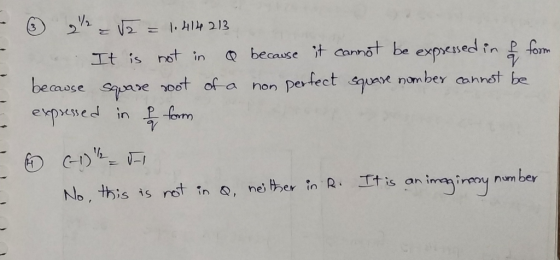 ③ 2^1/2 = √2 = 1.414 213
It is not in Q because it cannot be expressed in p/q form
because square root of a non perfect square number cannot be
expressed in p/q form
④ (-1)^1/2 = √-1
No, this is not in Q, neither in R. It is an imaginary number